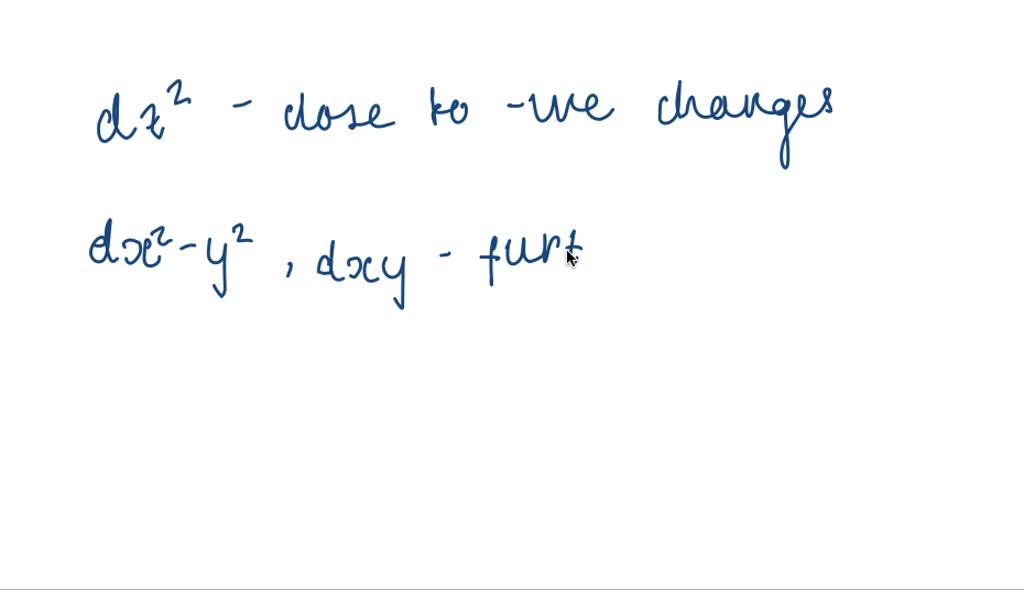 dz² - close to -ve changes
dx²-y², dxy - furt